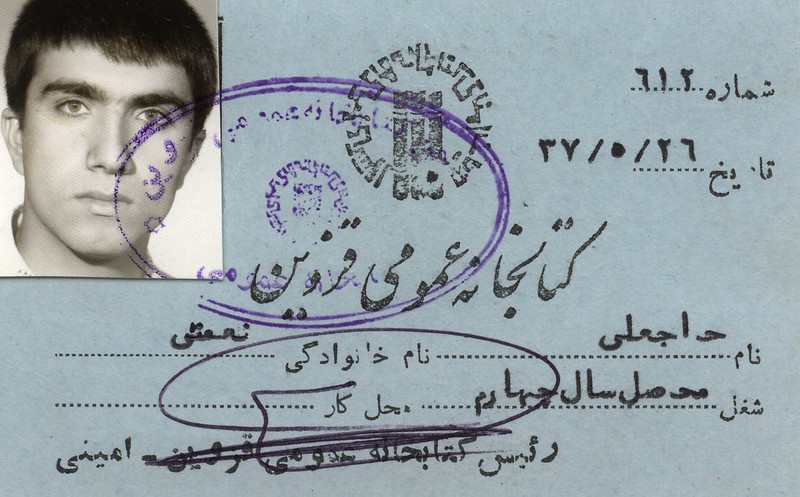 شماره ۶۱۲
تاریخ ۳۷/۵/۲۶
کتابخانه عمومی قزوین
نام حاجعلی نام خانوادگی نعمتی
شغل محصل سال چهارم محل کار
رئیس کتابخانه عمومی قزوین - امینی